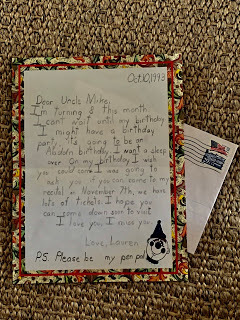 Oct 10, 1993
Dear Uncle Mike,
I'm turning 8 this month.
I can't wait until my birthday.
I might have a birthday
party. It's going to be an
Aladdin birthday. I want a sleep
over. On my birthday I wish
you could come. I was going to
ask you if you can come to my
recital on November 7th, we have
lots of tickets. I hope you
can come down soon to visit
I love you, I miss you.
Love, Lauren
P.S. Please be my pen pal